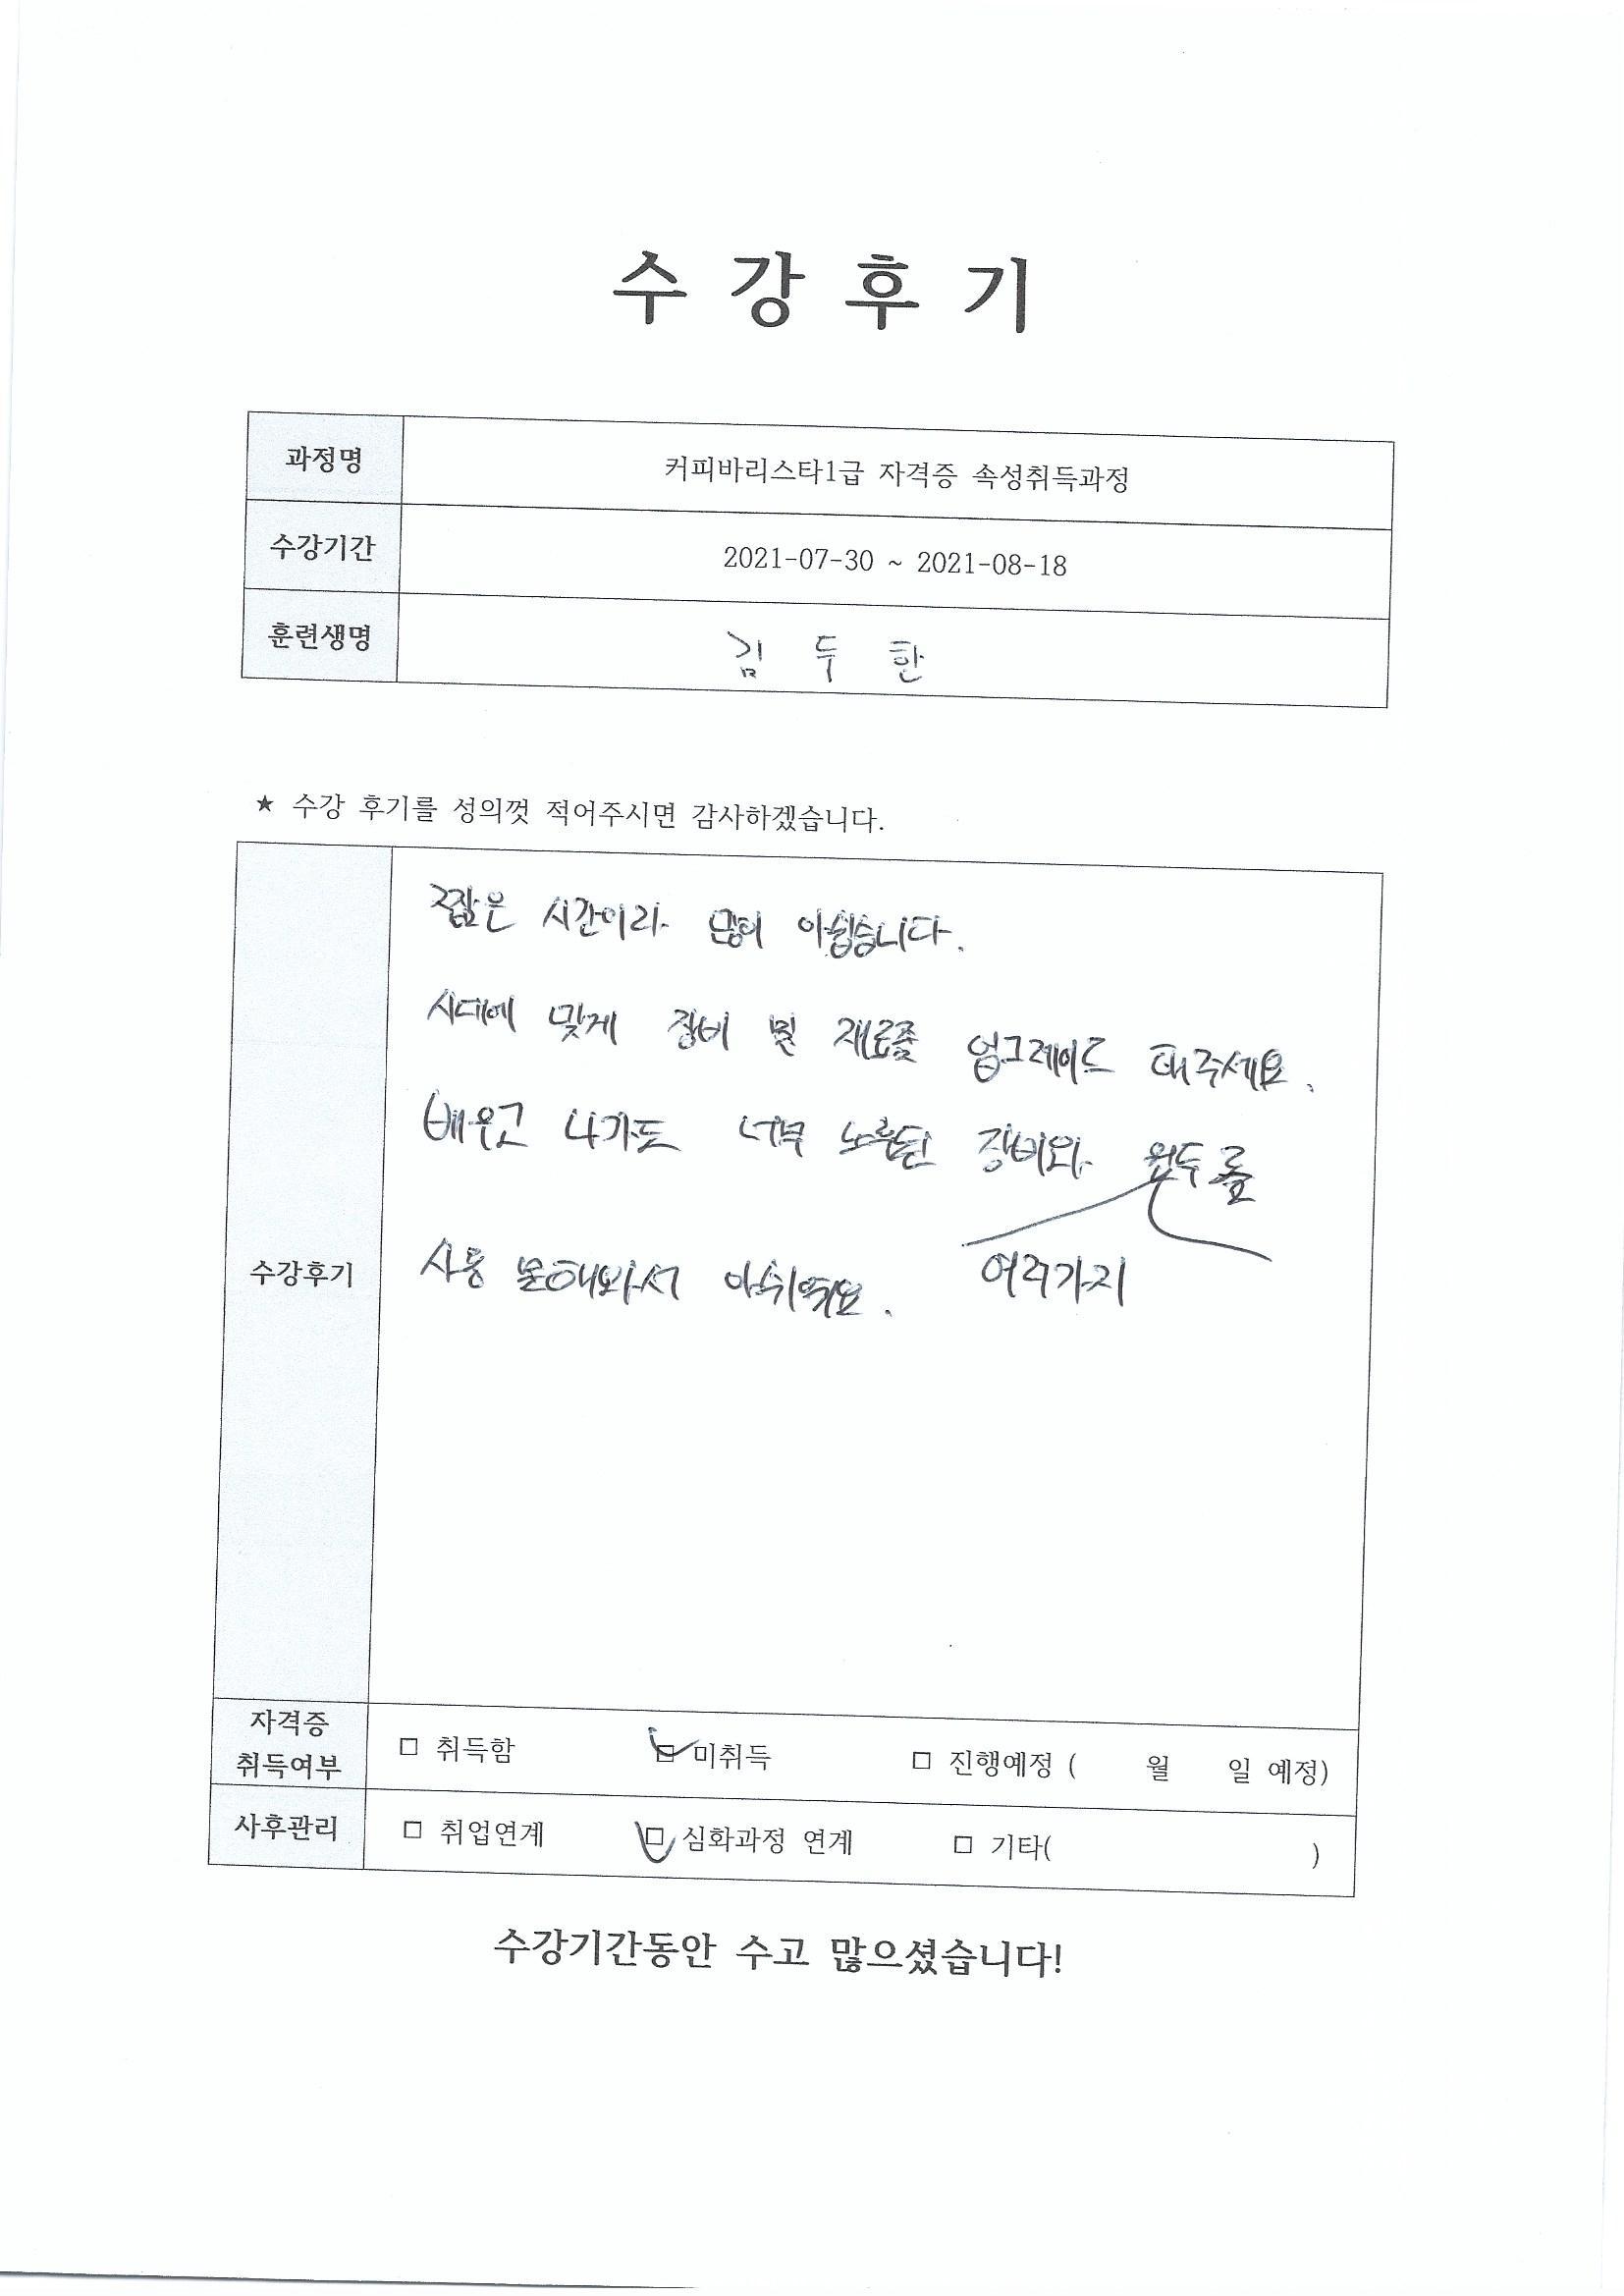 수 강 후 기
과정명 커피바리스타1급 자격증 속성취득과정
수강기간 2021-07-30 ~ 2021-08-18
훈련생명 김 두 한
★ 수강 후기를 성의껏 적어주시면 감사하겠습니다.
수강후기
짧은 시간이라 많이 아쉽습니다.
시대에 맞게 장비 및 재료좀 업그레이드 해주세요.
배우고 나가도 너무 노후된 장비와 원두를
사용 못해봐서 아쉬워요. 여러가지
자격증
취득여부 □ 취득함 □ 미취득 □ 진행예정 ( 월 일 예정)
사후관리 □ 취업연계 □ 심화과정 연계 □ 기타( )
수강기간동안 수고 많으셨습니다!